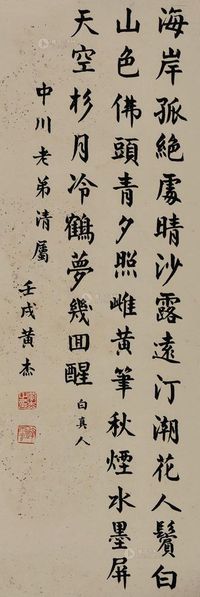 海岸孤絕處晴沙露遠汀潮花人鬢白
山色佛頭青夕照雌黃筆秋煙水墨屏
天空杉月冷鶴夢幾回醒 白真人
中川老弟清屬
壬戌黃杰